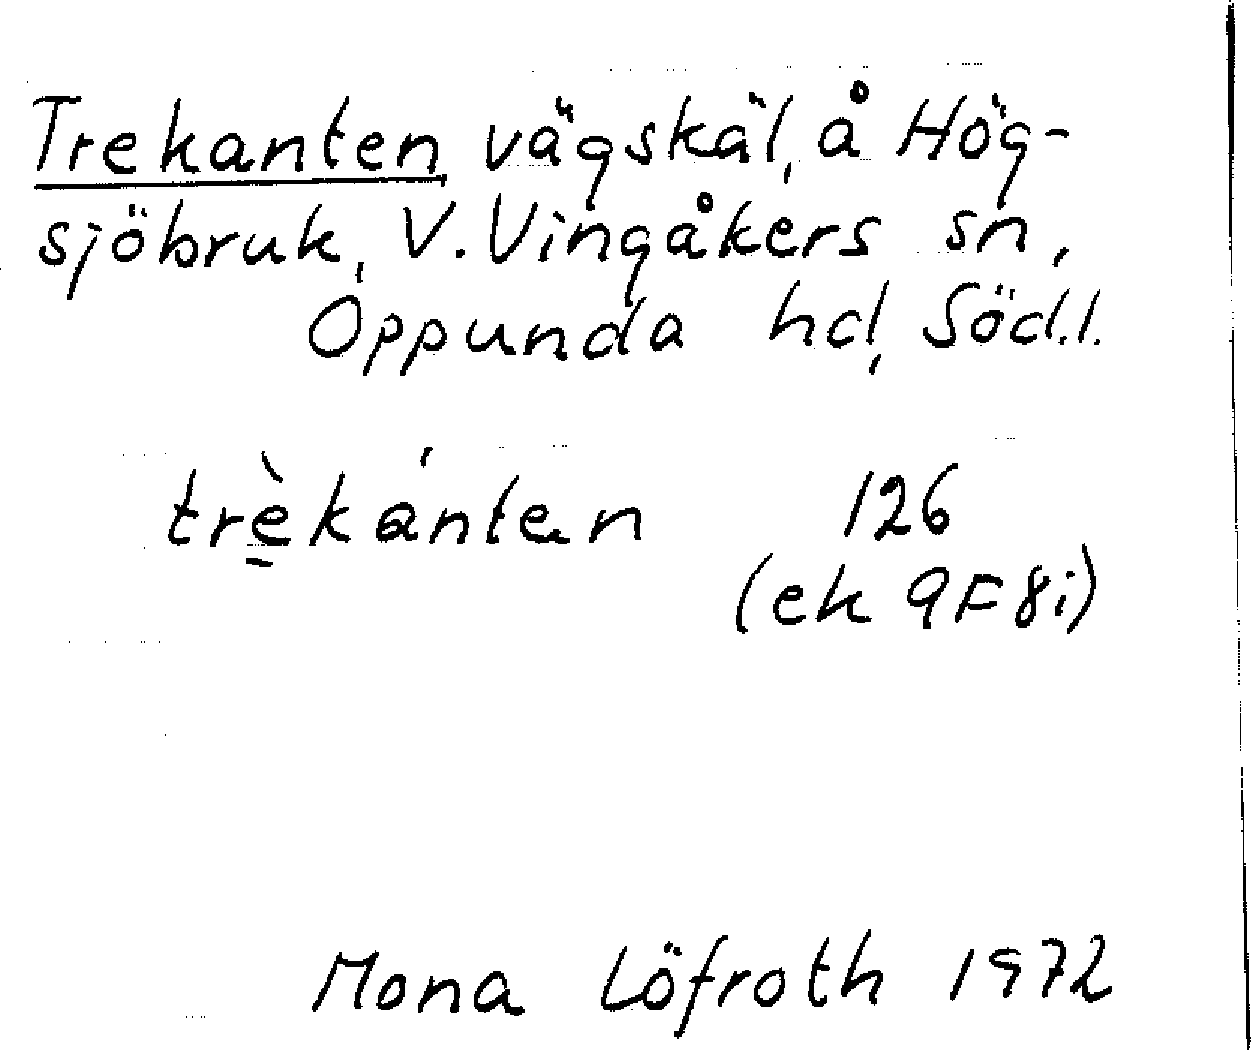 Trekanten, vägskäl, å Hög-
sjöbruk, V. Vingåkers sn,
Oppunda hd, Söd.l.
trèkánten 126
(ek 9F8i)
Mona Löfroth 1972